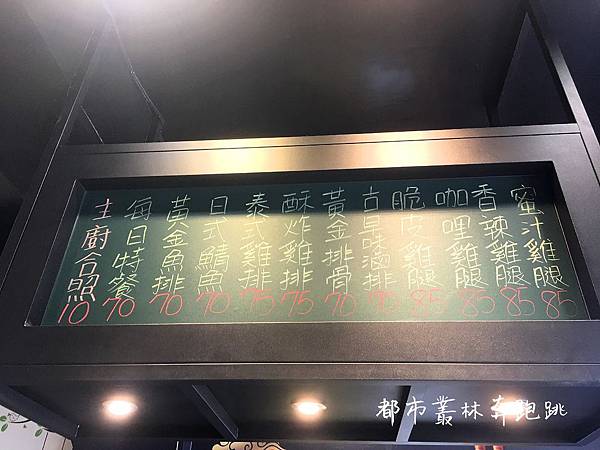 蜜汁雞腿 85
香辣雞腿 85
咖哩雞腿 85
脆皮雞腿 85
古早味滷排 70
黃金排骨 70
酥炸雞排 75
泰式雞排 75
日式鯖魚 70
黃金魚排 70
每日特餐 70
主廚合照 10
都市叢林奔跑跳